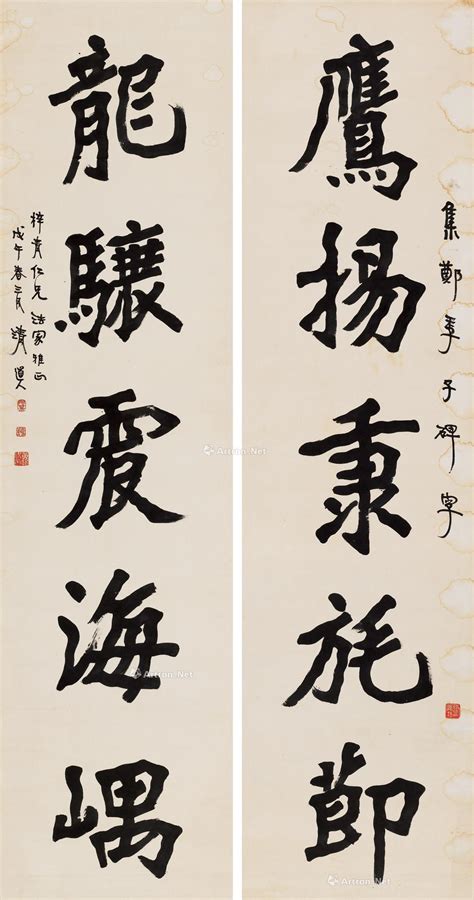 集鄭季子碑字
鷹揚秉旄節
龍驤震海嵎
梓青仁兄法家雅正
戊午春三月清道人
Artron.Net
Artron.Net
Artron.Net